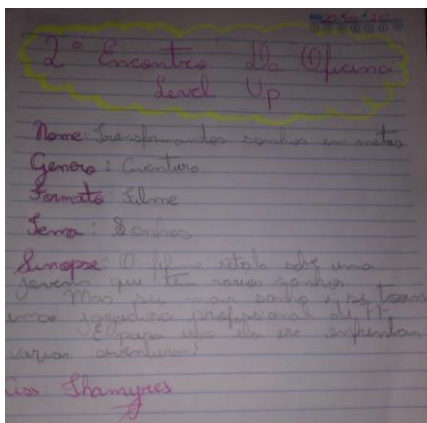 2º Encontro Da Oficina
Level Up
Nome: Transformandos sonhos em metas
Genero: Aventura
Formato: Filme
Tema: Sonhos
Sinopse: O filme retata sobre uma
jovem que tem varios sonhos
Mas seu maior sonho e se torna
uma jogadora profissional de FF
E para isso ela ira enfrentar
varias aventuras!
Ass: Thamyres